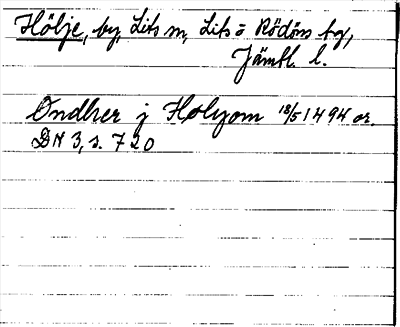 Hölje, by, Lits sn, Lits o Rödöns tg,
Jämtl. l.
Ondher j Holyom 18/5 1494 or.
DN 3, s. 720